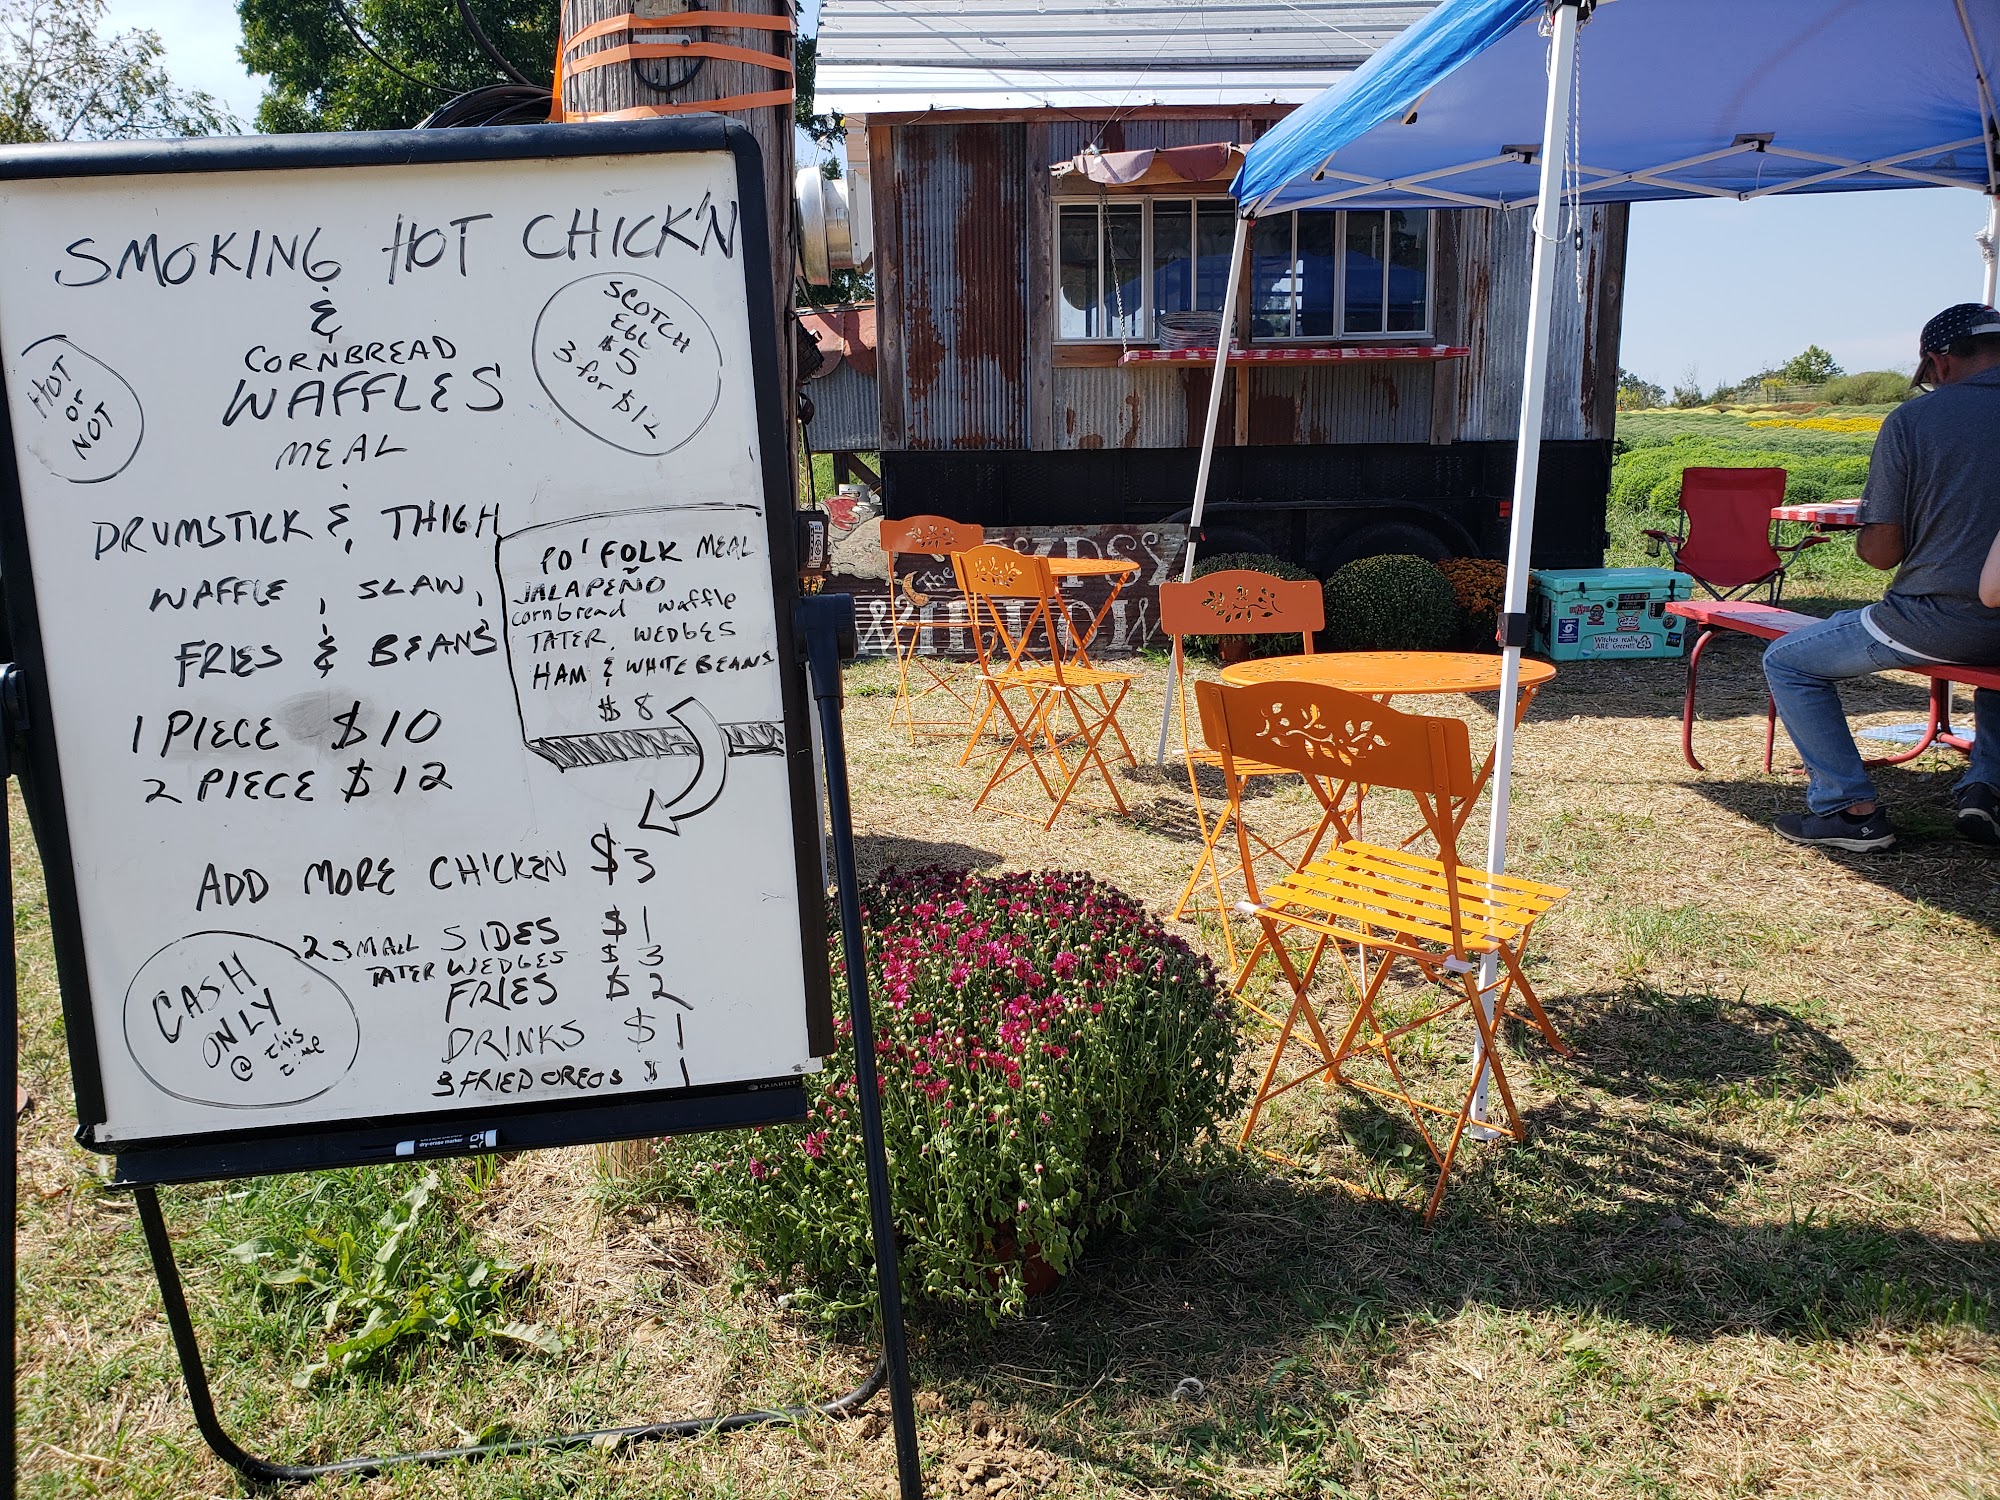 SMOKING HOT CHICK'N
&
CORNBREAD
WAFFLES
MEAL
HOT
or
NOT
SCOTCH
EGG
$5
3 for $12
DRUMSTICK & THIGH
WAFFLE, SLAW,
FRIES & BEANS
1 PIECE $10
2 PIECE $12
PO' FOLK MEAL
JALAPEÑO
cornbread waffle
TATER WEDGES
HAM & WHITE BEANS
$8
ADD MORE CHICKEN $3
2 SMALL SIDES $1
TATER WEDGES $3
FRIES $2
DRINKS $1
3 FRIED OREOS $1
CASH
ONLY
@ this
time
QUARTET
dry-erase marker
The GYPSY
WILLOW
Witches really
ARE Green!!!